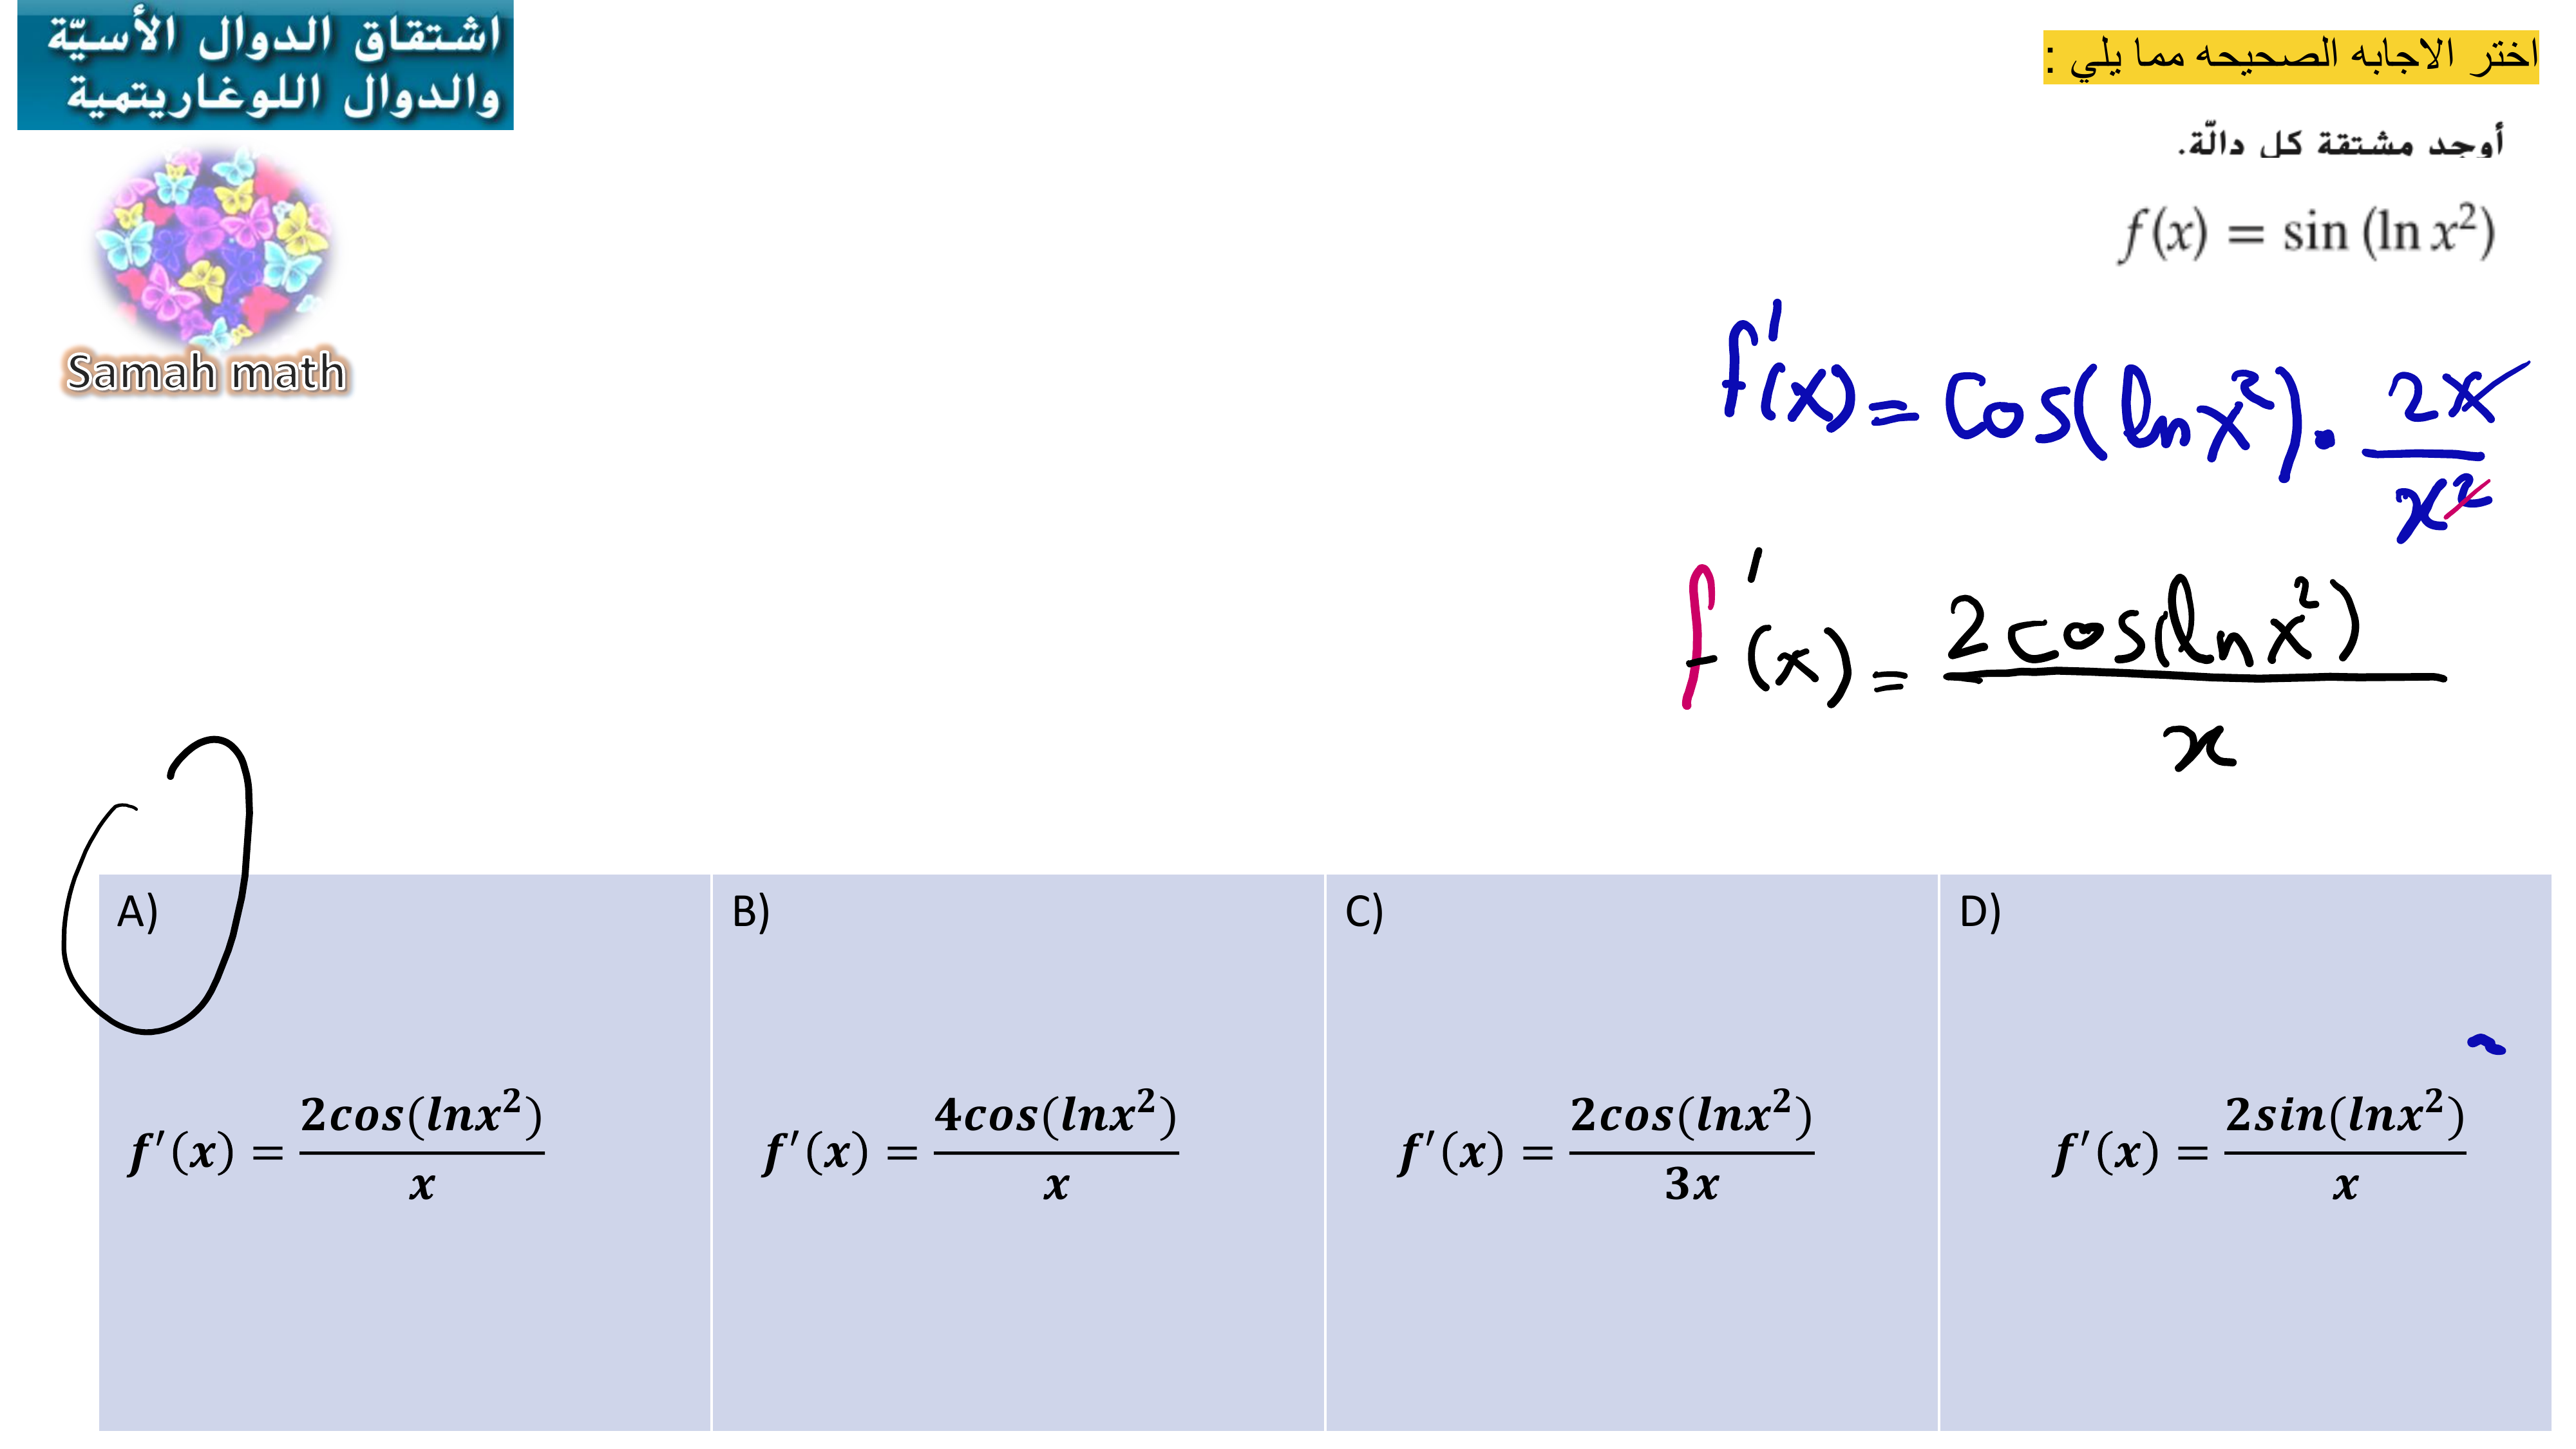 اشتقاق الدوال الأسيّة
والدوال اللوغاريتمية
Samah math
اختر الاجابه الصحيحه مما يلي :
أوجد مشتقة كل دالّة.
f(x) = sin (ln x²)
f'(x) = cos(ln x²) . 2x/x²
f'(x) = 2cos(ln x²)/x
A)
f′(x) = 2cos(lnx²)/x
B)
f′(x) = 4cos(lnx²)/x
C)
f′(x) = 2cos(lnx²)/3x
D)
f′(x) = 2sin(lnx²)/x